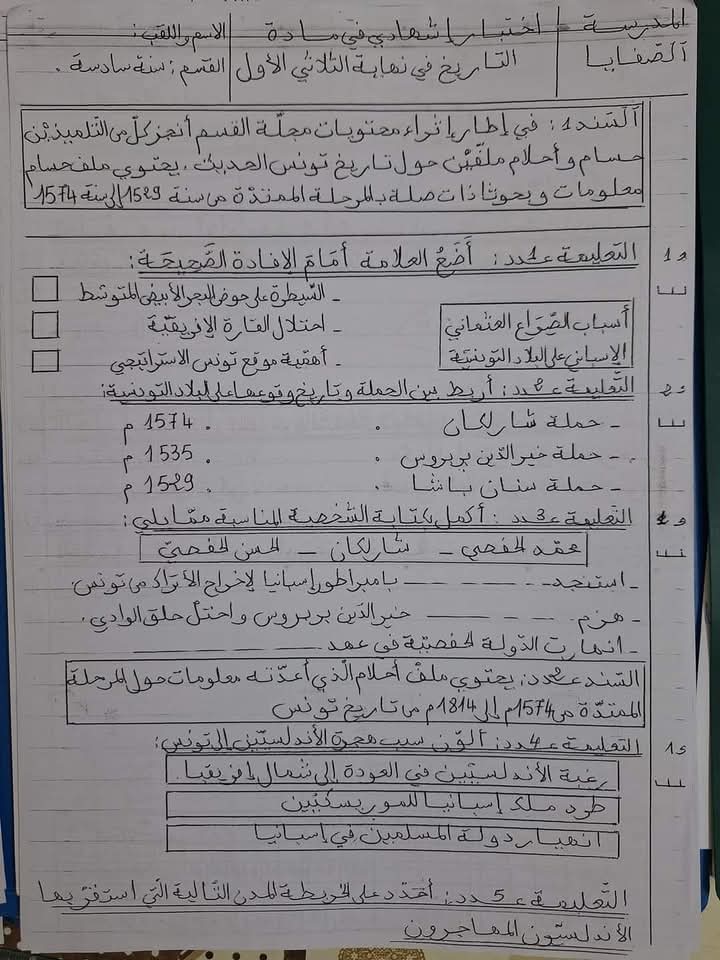 المدرسة
الصفايا
اختبار إشهادي في مادة
التاريخ في نهاية الثلاثي الأول
الاسم واللقب:
القسم: سنة سادسة.
السند 1: في إطار إثراء محتويات مجلّة القسم أنجز كلّ من التلميذين
حسام وأحلام ملفّين حول تاريخ تونس الحديث. يحتوي ملف حسام
معلومات وبحوثا ذات صلة بالمرحلة الممتدّة من سنة 1529 إلى سنة 1574
التعليمة عـ1ـدد: أضع العلامة أمام الإفادة الصّحيحة:
مع 1
أسباب الصّراع العثماني
الإسباني على البلاد التونسيّة
- السّيطرة على حوض البحر الأبيض المتوسّط
- احتلال القارة الإفريقيّة
- أهميّة موقع تونس الاستراتيجي
التّعليمة عـ2ـدد: أربط بين الحملة وتاريخ وقوعها على البلاد التونسية:
مع 2
- حملة شارلكان . . 1574 م
- حملة خير الدّين بربروس . . 1535 م
- حملة سنان باشا . . 1529 م
التّعليمة عـ3ـدد: أكمل بكتابة الشّخصية المناسبة ممّا يلي:
محمّد الحفصي - شارلكان - الحسن الحفصيّ
- استنجد ------ بامبراطور إسبانيا لإخراج الأتراك من تونس.
- هزم ------ خير الدّين بربروس واحتلّ حلق الوادي.
- انهارت الدّولة الحفصيّة في عهد ------
السّند عـ2ـدد: يحتوي ملفّ أحلام الّذي أعدّته معلومات حول المرحلة
الممتدّة من 1574م إلى 1814م من تاريخ تونس
التعليمة عـ4ـدد: ألوّن سبب هجرة الأندلسيّين إلى تونس:
مع 1
رغبة الأندلسيّين في العودة إلى شمال إفريقيا.
طرد ملك إسبانيا للموريسكيّين
انهيار دولة المسلمين في إسبانيا
التّعليمة عـ5ـدد: أحدّد على الخريطة المدن التّالية الّتي استقرّ بها
الأندلسيّون المهاجرون